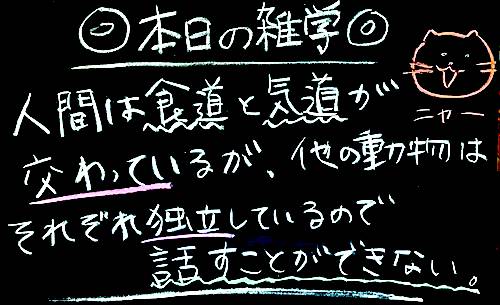 本日の雑学
人間は食道と気道が
ニャー
交わっているが、他の動物は
それぞれ独立しているので
話すことができない。